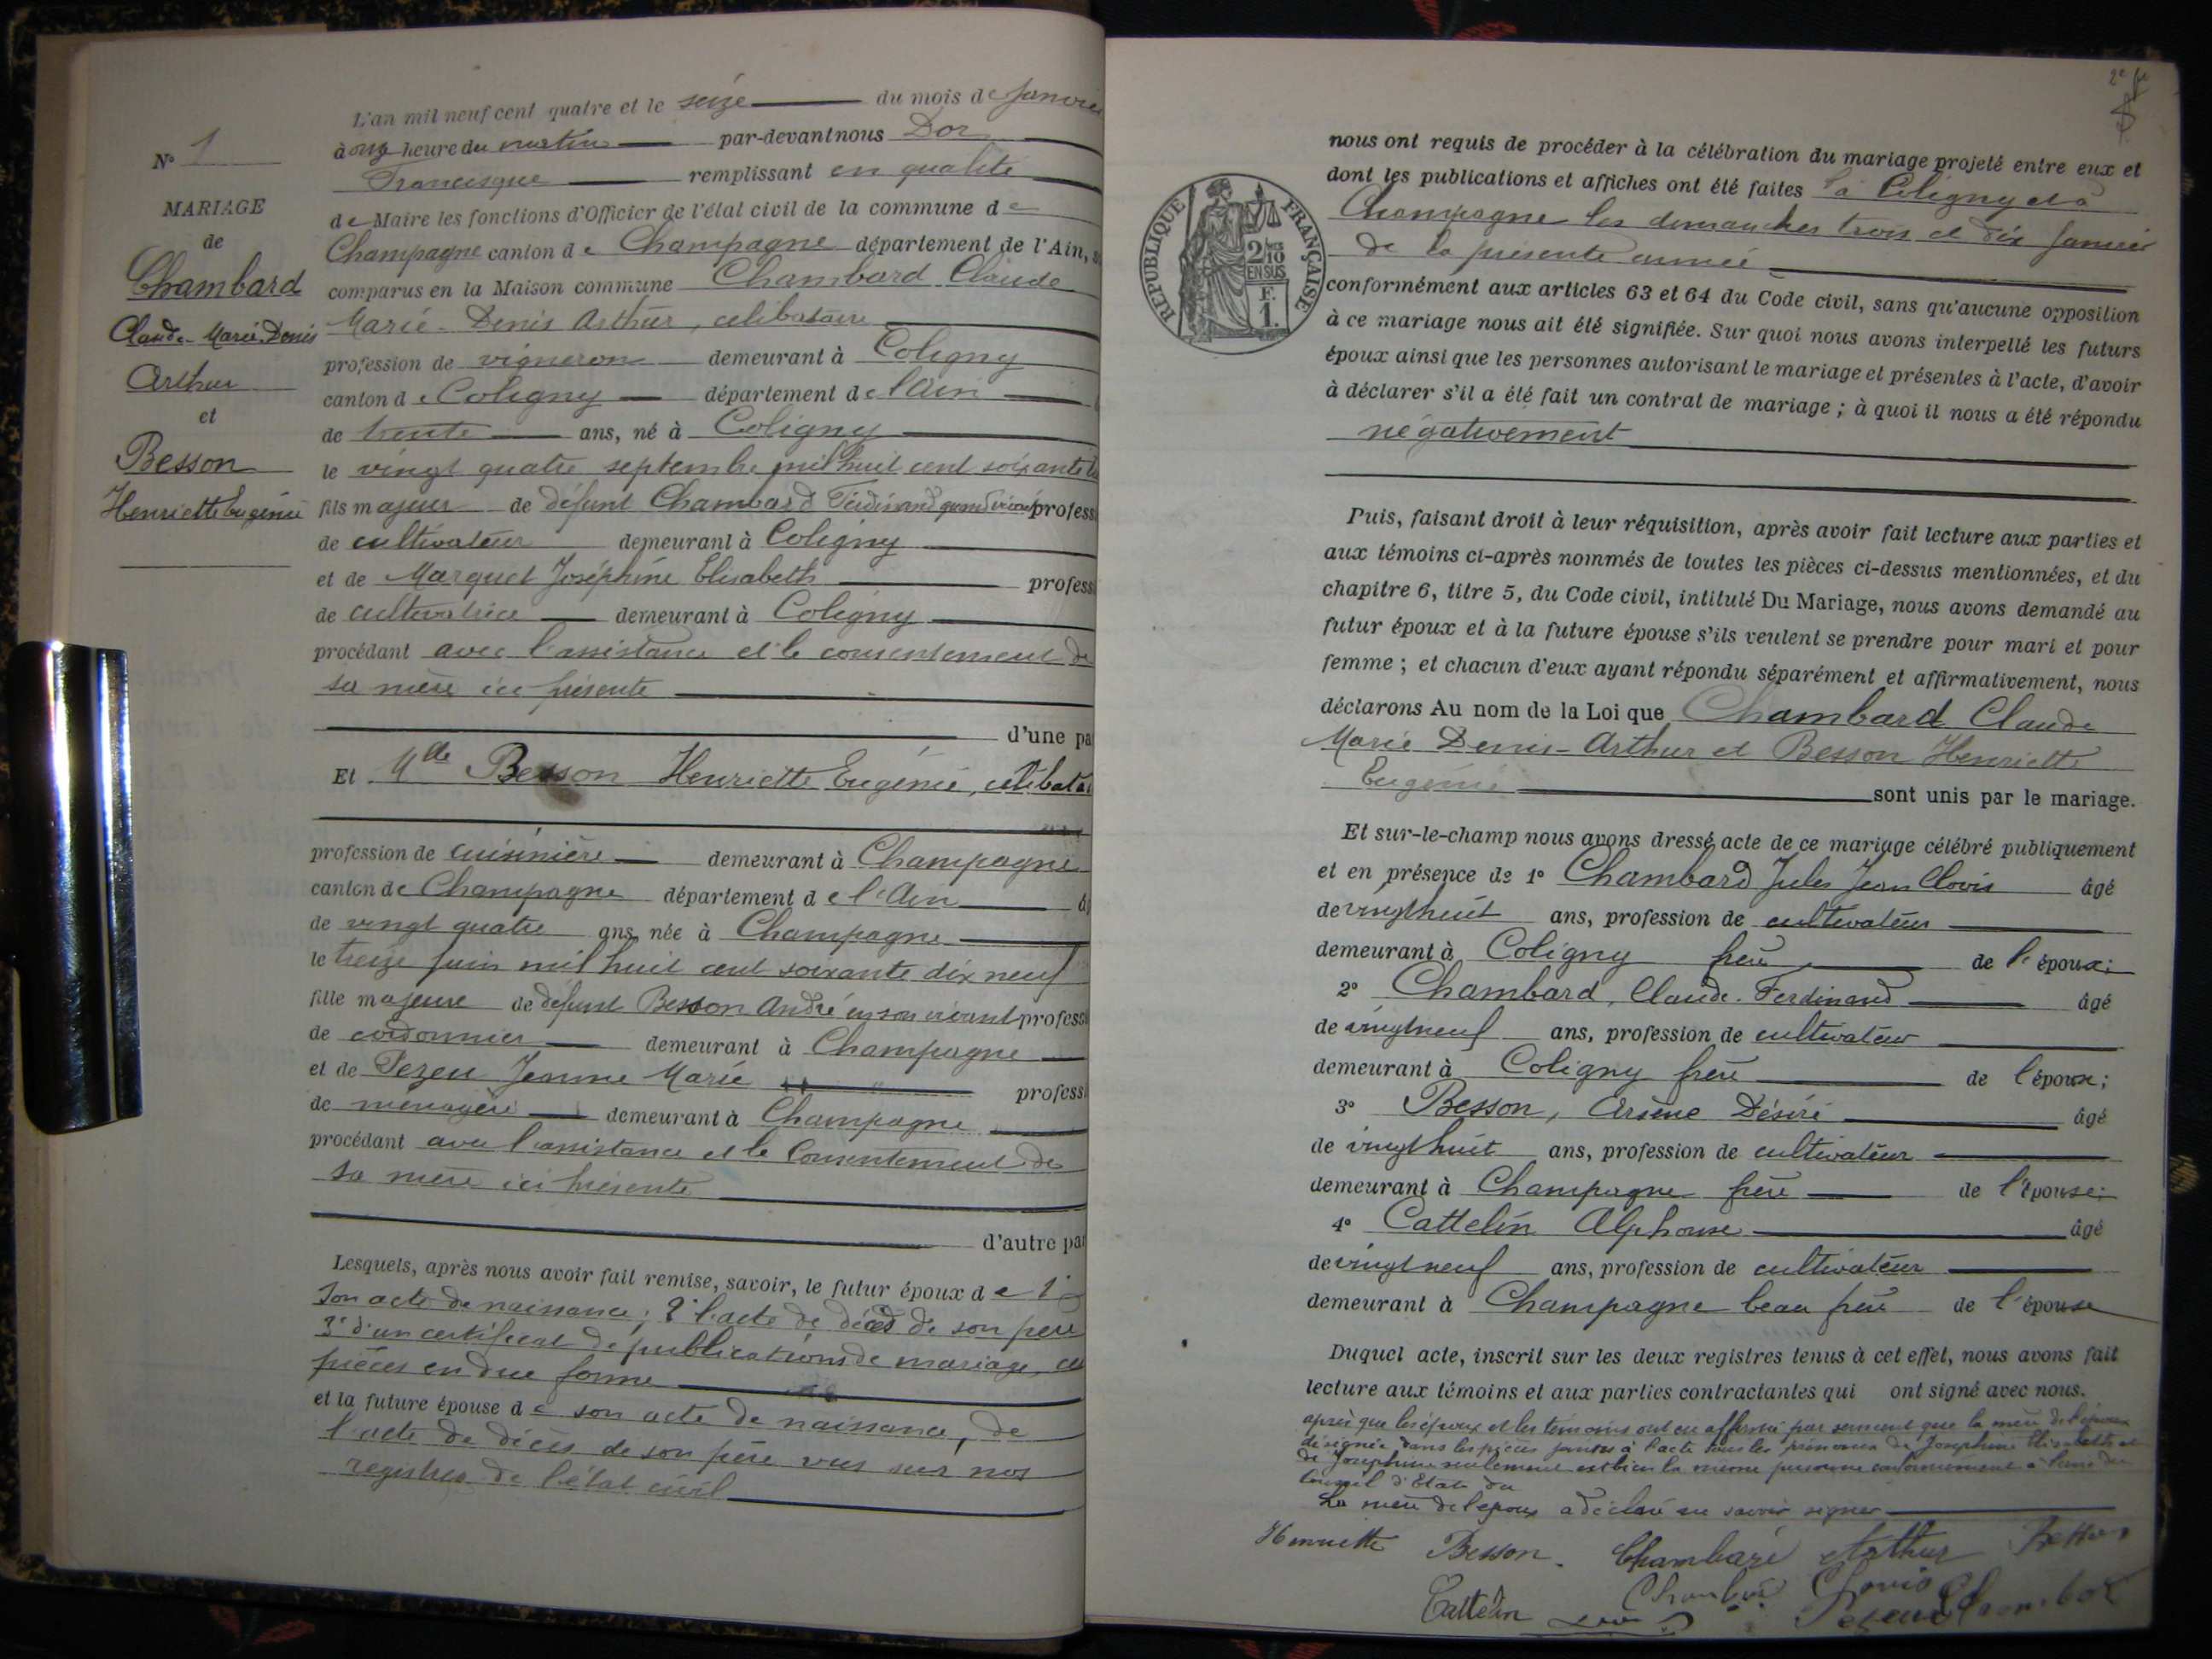 N° 1
MARIAGE
de
Chambard
Claude-Marie-Denis
Arthur
et
Besson
Henriette Eugénie
L'an mil neuf cent quatre et le seize du mois de Janvier
à onze heure du matin par-devant nous Dor
Francisque remplissant en qualité
de Maire les fonctions d'Officier de l'état civil de la commune de
Champagne canton de Champagne département de l'Ain,
comparus en la Maison commune Chambard Claude
Marie-Denis Arthur, célibataire
profession de vigneron demeurant à Coligny
canton de Coligny département de l'Ain
de trente ans, né à Coligny
le vingt quatre septembre mil huit cent soixante
fils majeur de défunt Chambard Ferdinand quand vivait profess
de cultivateur demeurant à Coligny
et de Marquet Joséphine Elisabeth profess
de cultivatrice demeurant à Coligny
procédant avec l'assistance et le consentement de
sa mère ici présente
d'une pa
Et Mlle Besson Henriette Eugénie, célibatai
profession de cuisinière demeurant à Champagne
canton de Champagne département de l'Ain
de vingt quatre ans, née à Champagne
le treize juin mil huit cent soixante dix neuf
fille majeure de défunt Besson André en son vivant profess
de cordonnier demeurant à Champagne
et de Pezeu Jeanne Marie profess
de ménagère demeurant à Champagne
procédant avec l'assistance et le Consentement de
sa mère ici présente
d'autre par
Lesquels, après nous avoir fait remise, savoir, le futur époux de 1°
son acte de naissance; 2° l'acte de décès de son père
3° d'un certificat de publications de mariage, ces
pièces en due forme
et la future épouse de son acte de naissance, de
l'acte de décès de son père vus sur nos
registres de l'état civil
RÉPUBLIQUE FRANÇAISE
2/10
EN SUS
F.
1.
nous ont requis de procéder à la célébration du mariage projeté entre eux et
dont les publications et affiches ont été faites à Coligny et à
Champagne les dimanches trois et dix Janvier
de la présente année
conformément aux articles 63 et 64 du Code civil, sans qu'aucune opposition
à ce mariage nous ait été signifiée. Sur quoi nous avons interpellé les futurs
époux ainsi que les personnes autorisant le mariage et présentes à l'acte, d'avoir
à déclarer s'il a été fait un contrat de mariage ; à quoi il nous a été répondu
négativement
Puis, faisant droit à leur réquisition, après avoir fait lecture aux parties et
aux témoins ci-après nommés de toutes les pièces ci-dessus mentionnées, et du
chapitre 6, titre 5, du Code civil, intitulé Du Mariage, nous avons demandé au
futur époux et à la future épouse s'ils veulent se prendre pour mari et pour
femme ; et chacun d'eux ayant répondu séparément et affirmativement, nous
déclarons Au nom de la Loi que Chambard Claude
Marie Denis-Arthur et Besson Henriette
Eugénie sont unis par le mariage.
Et sur-le-champ nous avons dressé acte de ce mariage célébré publiquement
et en présence de 1° Chambard Jules Jean Clovis âgé
de vingt huit ans, profession de cultivateur
demeurant à Coligny frère de l'époux;
2° Chambard, Claude-Ferdinand âgé
de vingt neuf ans, profession de cultivateur
demeurant à Coligny frère de l'époux;
3° Besson, Arsène Désiré âgé
de vingt huit ans, profession de cultivateur
demeurant à Champagne frère de l'épouse;
4° Cattelin Alphonse âgé
de vingt neuf ans, profession de cultivateur
demeurant à Champagne beau frère de l'épouse
Duquel acte, inscrit sur les deux registres tenus à cet effet, nous avons fait
lecture aux témoins et aux parties contractantes qui ont signé avec nous.
après que les époux et les témoins ont eu affirmé par serment que la mère de l'époux
désignée dans les pièces jointes à l'acte sous les prénoms de Joséphine Elisabeth et
de Joséphine seulement est bien la même personne conformément à l'avis du
Conseil d'Etat du
La mère de l'époux a déclaré ne savoir signer
Henriette Besson. Chambard Arthur Besson
Cattelin Chambard Clovis
Pezeu Chambard